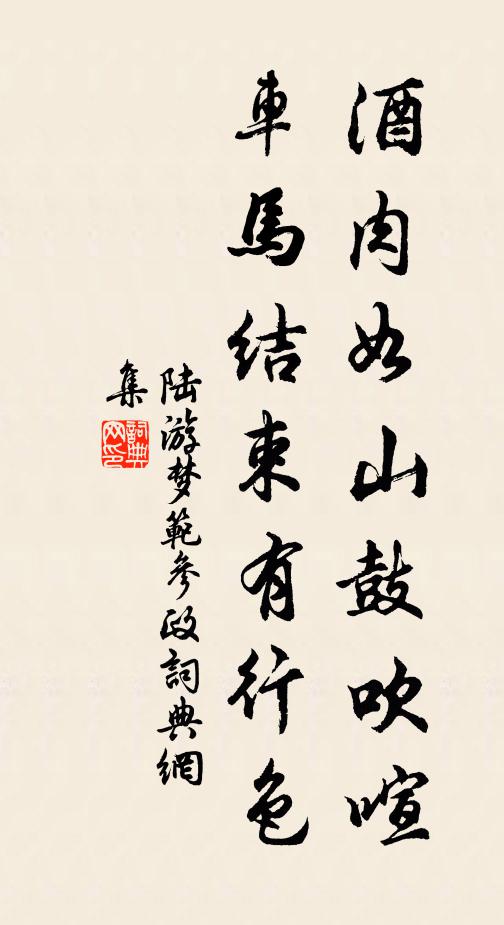 酒肉如山鼓吹喧
車馬結束有行色
陆游梦範參政詞典網
集
詞典
网印